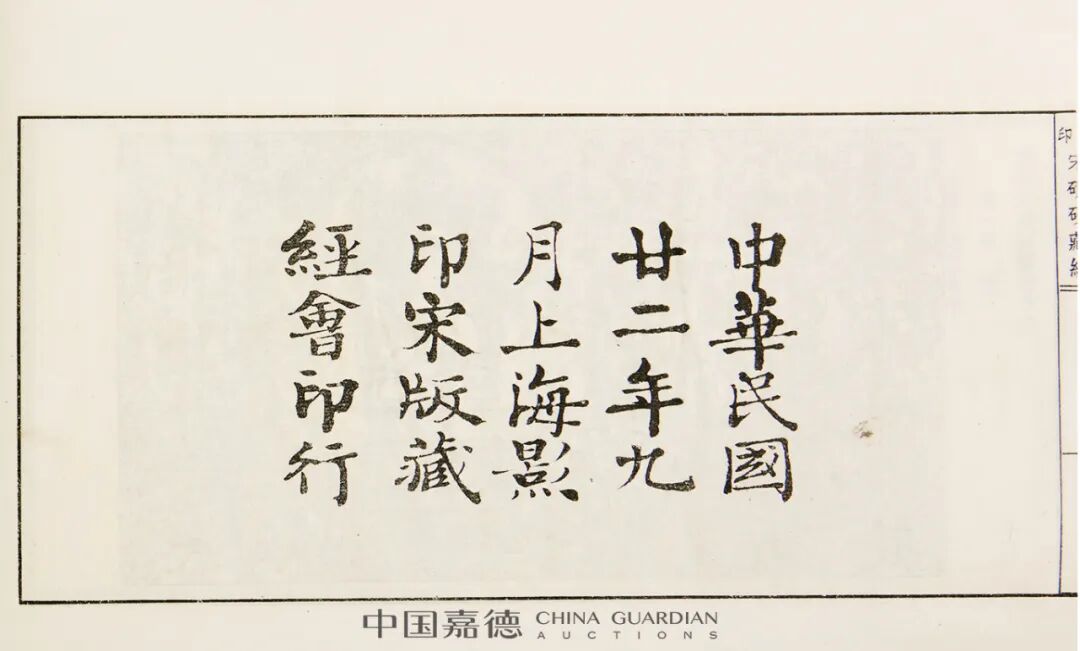 中華民國
廿二年九
月上海影
印宋版藏
經會印行
中国嘉德 CHINA GUARDIAN
AUCTIONS